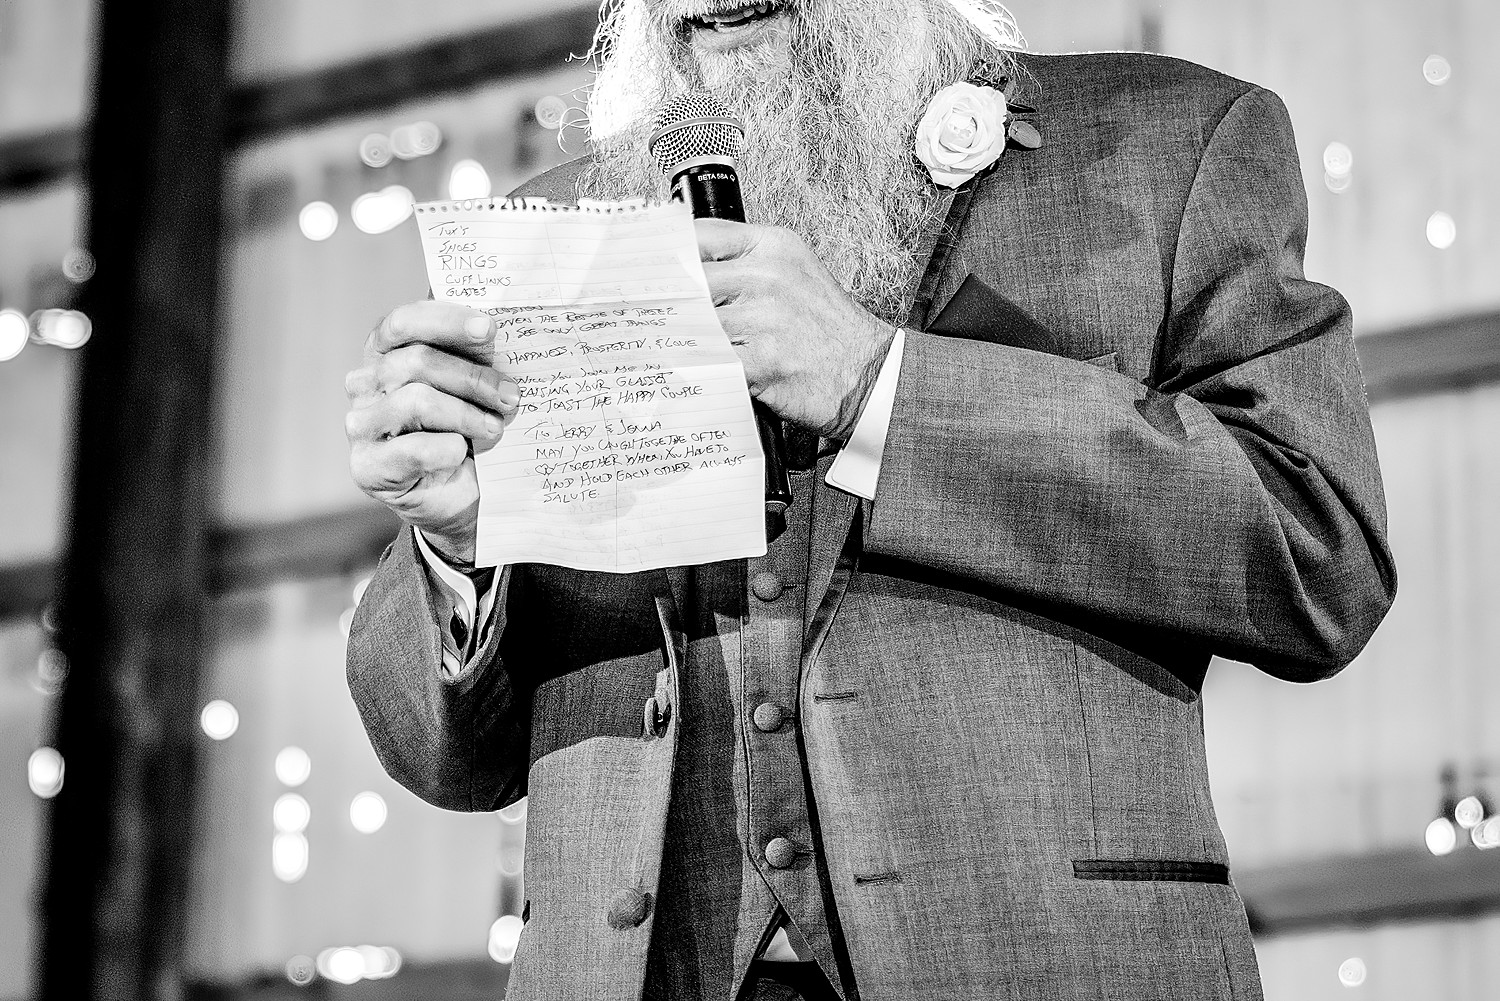 BETA 58A
TUX'S
SHOES
RINGS
CUFF LINKS
GLASSES
GIVEN THE RESUME OF THESE 2
I SEE ONLY GREAT THINGS
HAPPINESS, PROSPERITY, & LOVE
YOU JOIN ME IN
RAISING YOUR GLASSES
TO TOAST THE HAPPY COUPLE
TO JERRY & JENNA
MAY YOU LAUGH TOGETHER OFTEN
CRY TOGETHER WHEN YOU HAVE TO
AND HOLD EACH OTHER ALWAYS
SALUTE